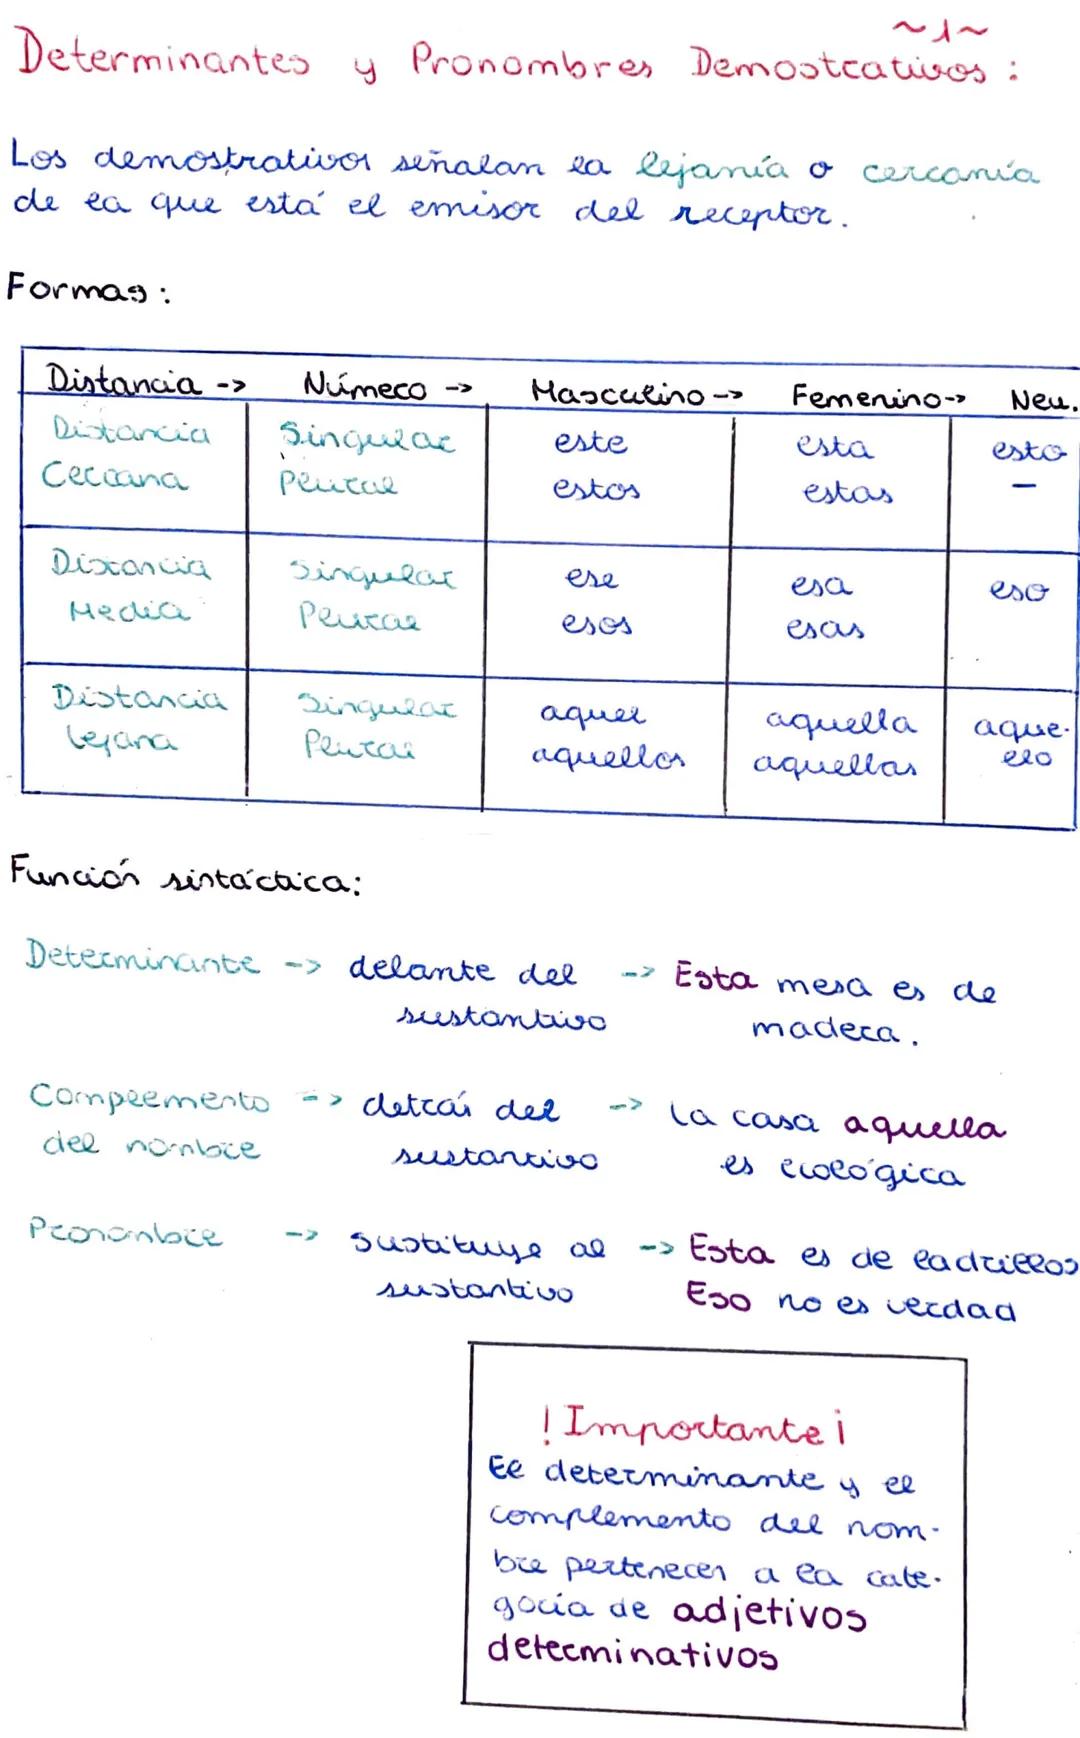 ~1~
Determinantes y Pronombres Demostrativos :
Los demostrativos señalan la lejanía o cercanía
de la que está el emisor del receptor.
Formas :
Distancia -> Número -> Masculino -> Femenino -> Neu.
Distancia Singular este esta esto
Cercana Plural estos estas –
Distancia Singular ese esa eso
Media Plural esos esas
Distancia Singular aquel aquella aque-
lejana Plural aquellos aquellas llo
Función sintáctica:
Determinante -> delante del -> Esta mesa es de
sustantivo madera.
Complemento -> detrás del -> La casa aquella
del nombre sustantivo es ecológica
Pronombre -> sustituye al -> Esta es de ladrillos
sustantivo Eso no es verdad
! Importante ¡
El determinante y el
complemento del nom-
bre pertenecen a la cate-
goría de adjetivos
determinativos